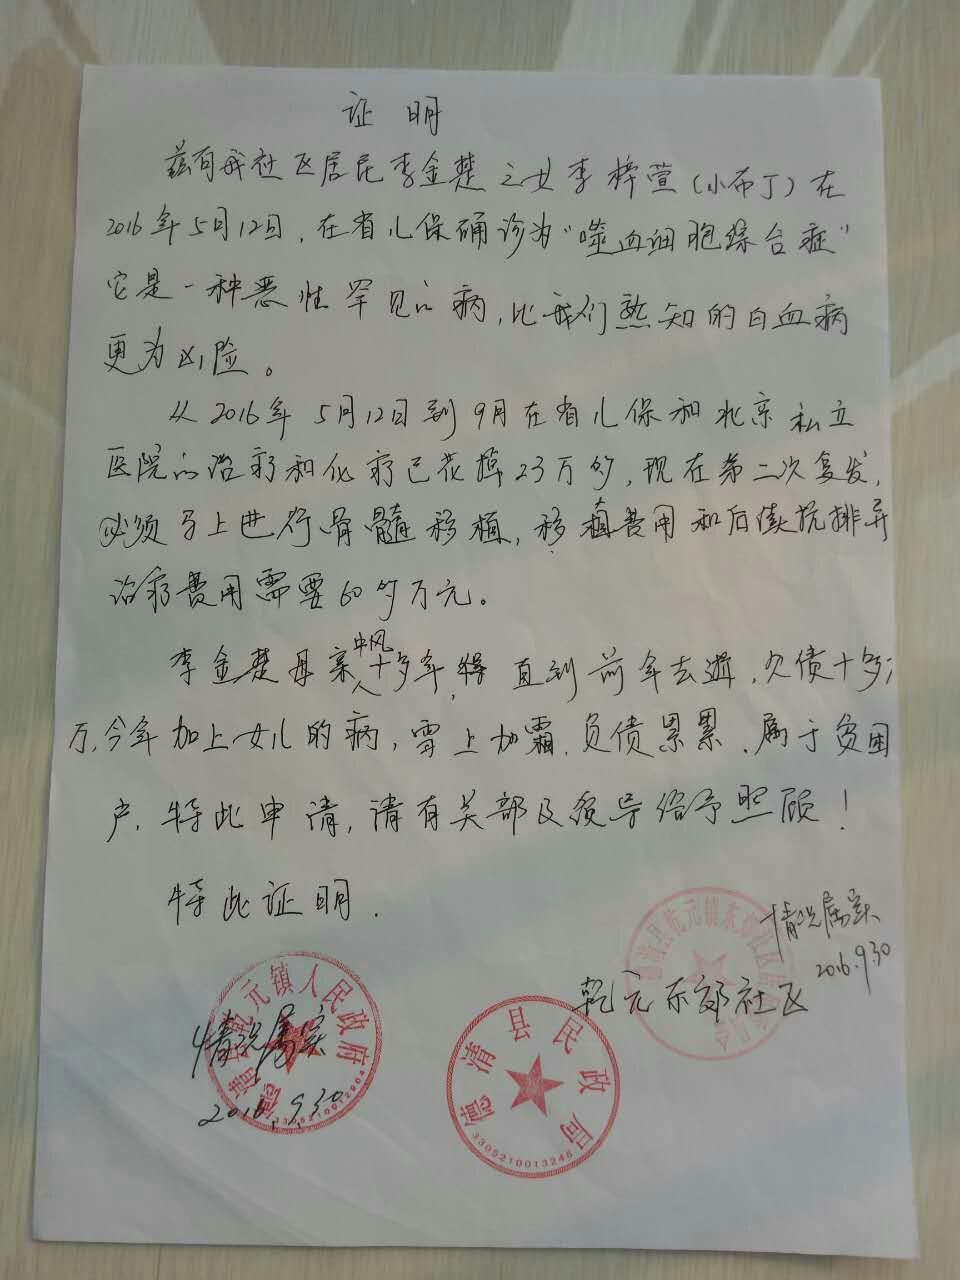 证 明
兹有我社区居民李金楚之女李梓萱(小布丁)在
2016年5月12日,在省儿保确诊为“噬血细胞综合症”
它是一种恶性罕见的病,比我们熟知的白血病
更为凶险。
从2016年5月12日到9月在省儿保和北京私立
医院的治疗和化疗已花掉23万多,现在第二次复发,
必须马上进行骨髓移植,移植费用和后续抗排异
治疗费用需要60多万元。
李金楚母亲中风十多年,直到前年去逝,欠债十多
万,今年加上女儿的病,雪上加霜,负债累累,属于贫困
户,特此申请,请有关部及领导给予照顾!
特此证明.
情况属实
2016.9.30
乾元东郊社区
德清县乾元镇人民政府
情况属实
2016.9.30
3305210012904
德清县民政局
3305210013245